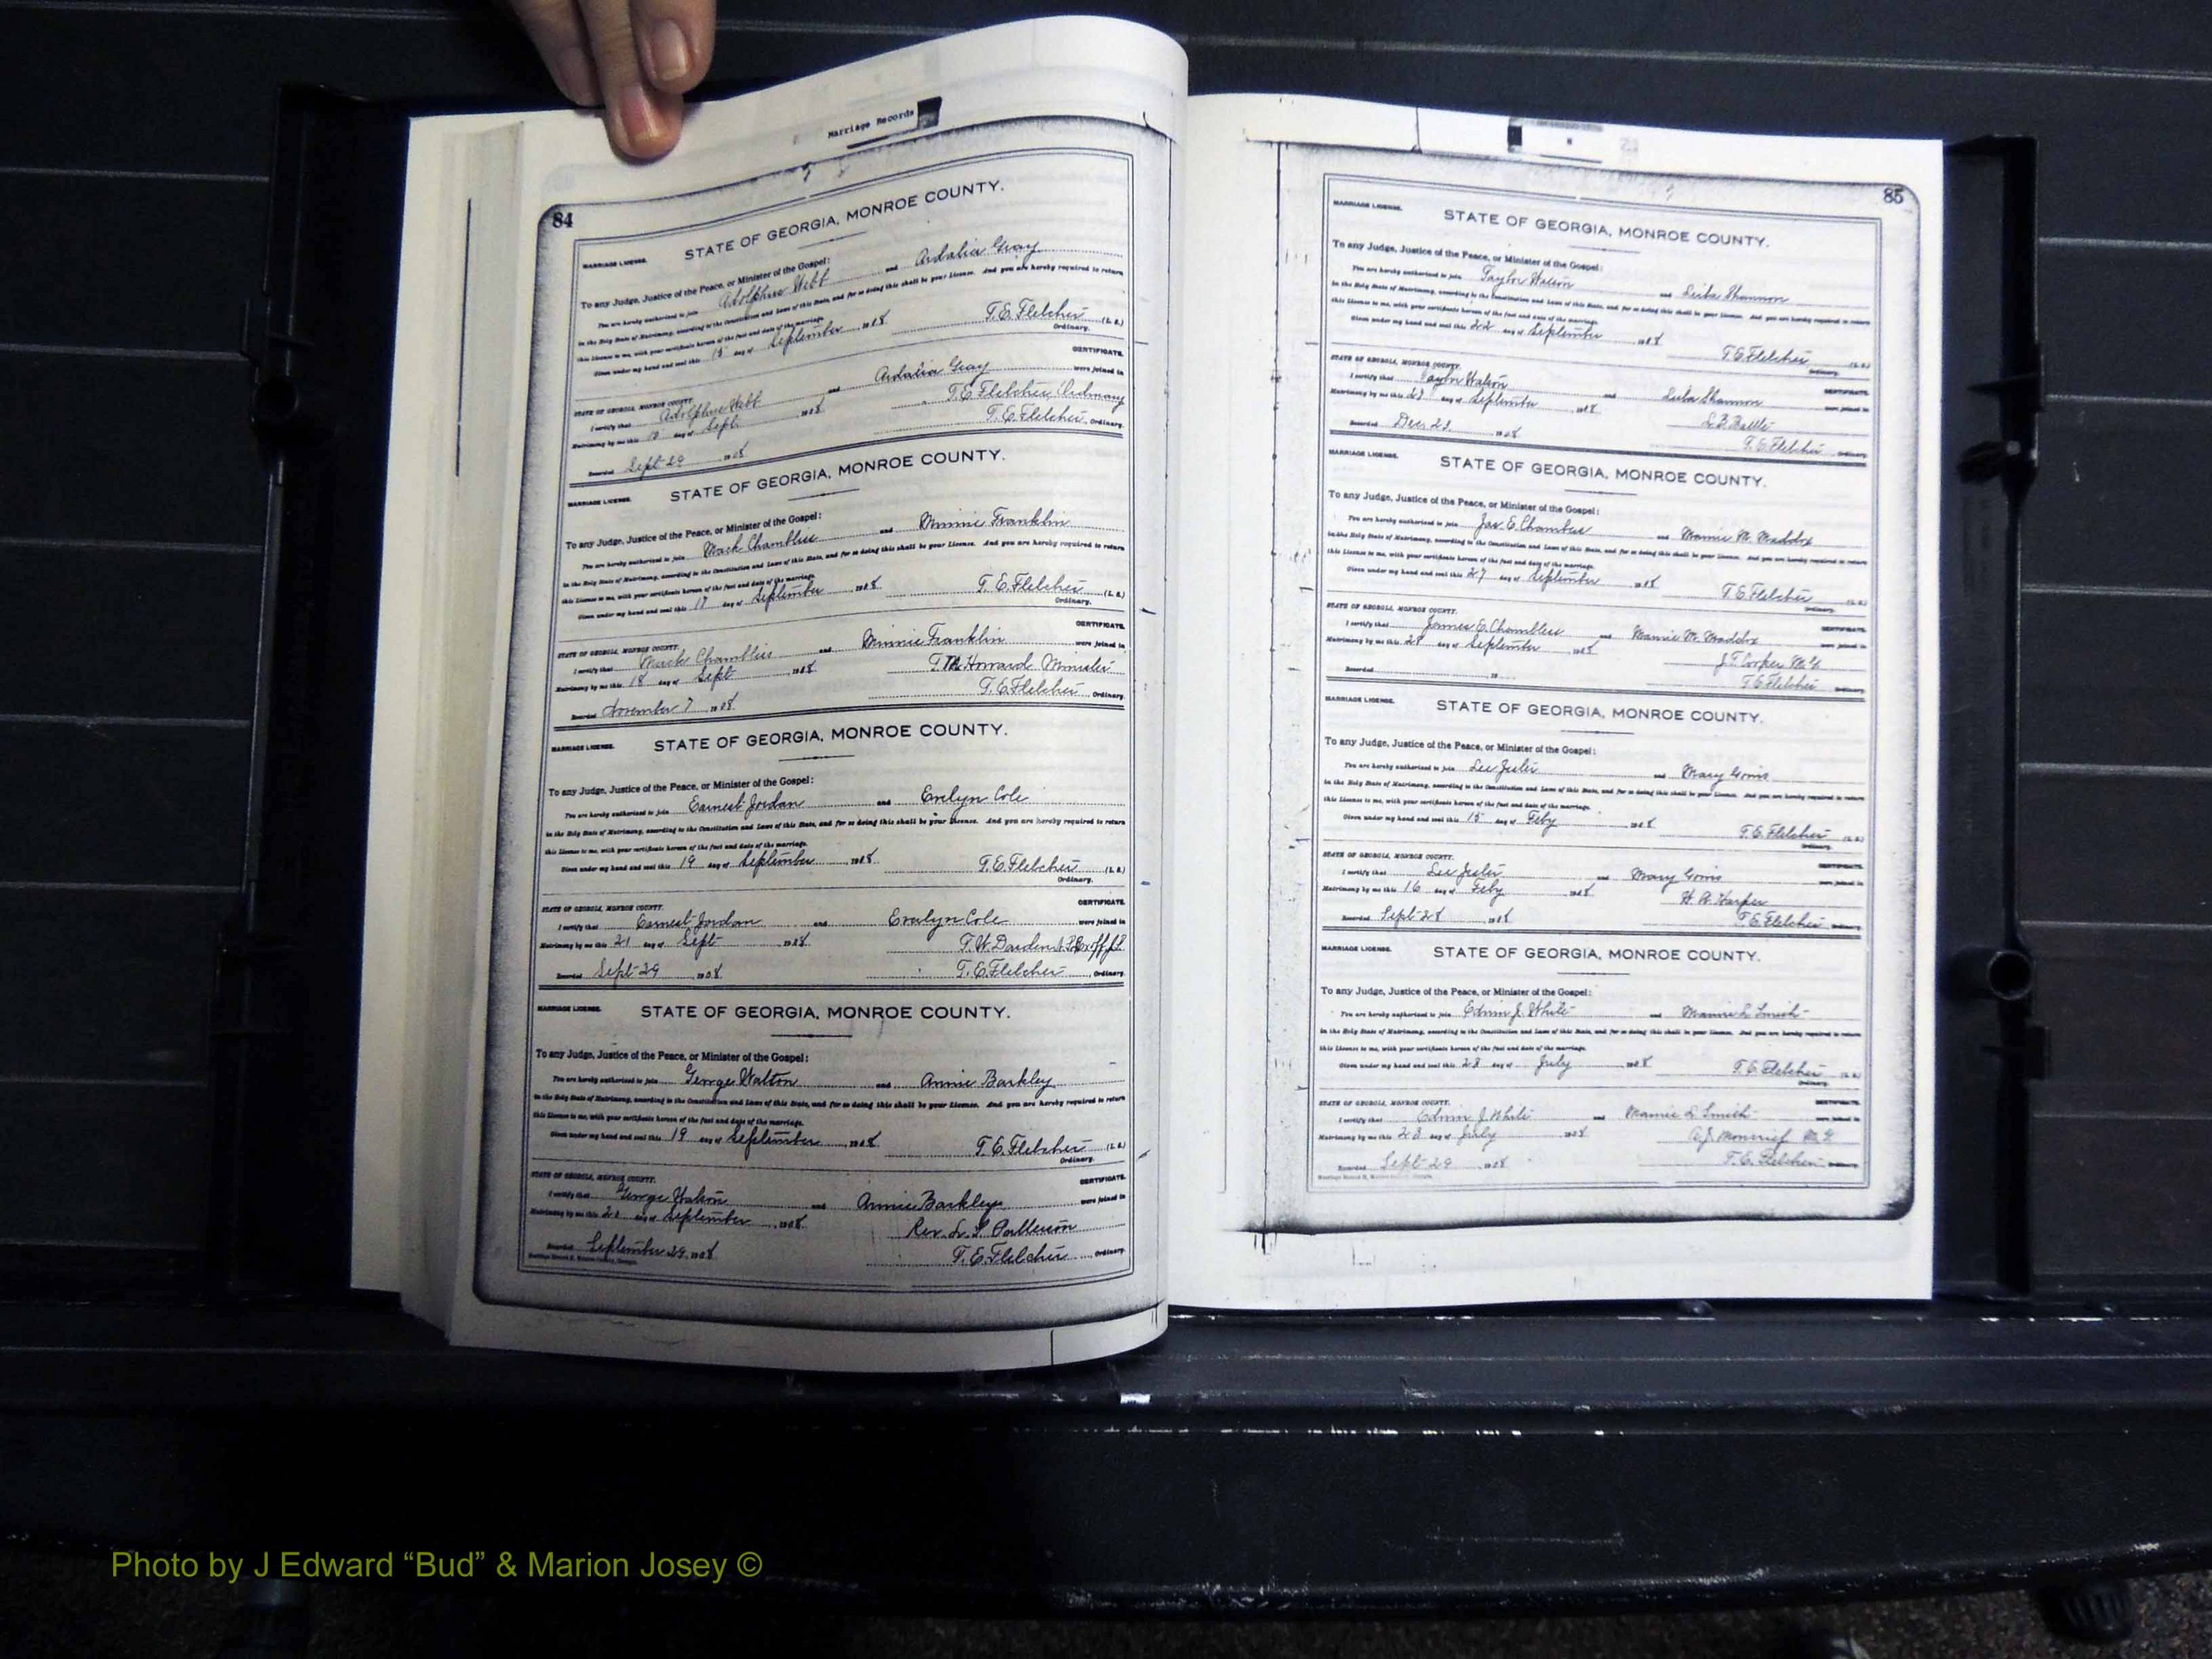 Marriage Records
84
STATE OF GEORGIA, MONROE COUNTY.
MARRIAGE LICENSE.
To any Judge, Justice of the Peace, or Minister of the Gospel:
You are hereby authorized to join Adolphus Webb and Ardalia Gray
in the Holy State of Matrimony, according to the Constitution and Laws of this State, and for so doing this shall be your License. And you are hereby required to return
this License to me, with your certificate hereon of the fact and date of the marriage.
Given under my hand and seal this 15 day of September 1908
T. E. Fletcher (L. S.)
Ordinary.
CERTIFICATE.
STATE OF GEORGIA, MONROE COUNTY.
I certify that Adolphus Webb and Ardalia Gray were joined in
Matrimony by me this day of Sept. 1908 T. E. Fletcher Ordinary
Recorded Sept 29 1908 T. E. Fletcher Ordinary.
MARRIAGE LICENSE.
STATE OF GEORGIA, MONROE COUNTY.
To any Judge, Justice of the Peace, or Minister of the Gospel:
You are hereby authorized to join Mack Chambliss and Minnie Franklin
in the Holy State of Matrimony, according to the Constitution and Laws of this State, and for so doing this shall be your License. And you are hereby required to return
this License to me, with your certificate hereon of the fact and date of the marriage.
Given under my hand and seal this 17 day of September 1908 T. E. Fletcher (L. S.)
Ordinary.
CERTIFICATE.
STATE OF GEORGIA, MONROE COUNTY.
I certify that Mack Chambliss and Minnie Franklin were joined in
Matrimony by me this 18 day of Sept 1908 Howard Minister
Recorded November 7 1908 T. E. Fletcher Ordinary.
MARRIAGE LICENSE.
STATE OF GEORGIA, MONROE COUNTY.
To any Judge, Justice of the Peace, or Minister of the Gospel:
You are hereby authorized to join Earnest Jordan and Evelyn Cole
in the Holy State of Matrimony, according to the Constitution and Laws of this State, and for so doing this shall be your License. And you are hereby required to return
this License to me, with your certificate hereon of the fact and date of the marriage.
Given under my hand and seal this 19 day of September 1908 T. E. Fletcher (L. S.)
Ordinary.
CERTIFICATE.
STATE OF GEORGIA, MONROE COUNTY.
I certify that Earnest Jordan and Evalyn Cole were joined in
Matrimony by me this 21 day of Sept 1908 T. W. Darden
Recorded Sept 29 1908 T. E. Fletcher Ordinary.
MARRIAGE LICENSE.
STATE OF GEORGIA, MONROE COUNTY.
To any Judge, Justice of the Peace, or Minister of the Gospel:
You are hereby authorized to join George Walton and Annie Barkley
in the Holy State of Matrimony, according to the Constitution and Laws of this State, and for so doing this shall be your License. And you are hereby required to return
this License to me, with your certificate hereon of the fact and date of the marriage.
Given under my hand and seal this 19 day of September 1908 T. E. Fletcher (L. S.)
Ordinary.
CERTIFICATE.
STATE OF GEORGIA, MONROE COUNTY.
I certify that George Walton and Annie Barkley were joined in
Matrimony by me this day of September 1908 Rev. L. S. Patterson
Recorded September 29 1908 T. E. Fletcher Ordinary.
85
MARRIAGE LICENSE.
STATE OF GEORGIA, MONROE COUNTY.
To any Judge, Justice of the Peace, or Minister of the Gospel:
You are hereby authorized to join Taylor Watson and Shannon
in the Holy State of Matrimony, according to the Constitution and Laws of this State, and for so doing this shall be your License. And you are hereby required to return
this License to me, with your certificate hereon of the fact and date of the marriage.
Given under my hand and seal this 22 day of September 1908
T. E. Fletcher (L. S.)
Ordinary.
CERTIFICATE.
STATE OF GEORGIA, MONROE COUNTY.
I certify that Taylor Watson and Shannon were joined in
Matrimony by me this 27 day of September 1908 Battle
Recorded Dec 23 1908 T. E. Fletcher Ordinary.
MARRIAGE LICENSE.
STATE OF GEORGIA, MONROE COUNTY.
To any Judge, Justice of the Peace, or Minister of the Gospel:
You are hereby authorized to join Jas. E. Chambliss and Mamie M. Maddox
in the Holy State of Matrimony, according to the Constitution and Laws of this State, and for so doing this shall be your License. And you are hereby required to return
this License to me, with your certificate hereon of the fact and date of the marriage.
Given under my hand and seal this 27 day of September 1908 T. E. Fletcher (L. S.)
Ordinary.
CERTIFICATE.
STATE OF GEORGIA, MONROE COUNTY.
I certify that James E. Chambliss and Mamie M. Maddox were joined in
Matrimony by me this 28 day of September 1908 J. T. Cooper M. G.
Recorded 19 T. E. Fletcher Ordinary.
MARRIAGE LICENSE.
STATE OF GEORGIA, MONROE COUNTY.
To any Judge, Justice of the Peace, or Minister of the Gospel:
You are hereby authorized to join Lee Jester and Mary Goins
in the Holy State of Matrimony, according to the Constitution and Laws of this State, and for so doing this shall be your License. And you are hereby required to return
this License to me, with your certificate hereon of the fact and date of the marriage.
Given under my hand and seal this 15 day of Feby 1908 T. E. Fletcher (L. S.)
Ordinary.
CERTIFICATE.
STATE OF GEORGIA, MONROE COUNTY.
I certify that Lee Jester and Mary Goins were joined in
Matrimony by me this 16 day of Feby 1908 Harper
Recorded Sept 28 1908 T. E. Fletcher Ordinary.
MARRIAGE LICENSE.
STATE OF GEORGIA, MONROE COUNTY.
To any Judge, Justice of the Peace, or Minister of the Gospel:
You are hereby authorized to join Edwin J. White and Mamie L. Smith
in the Holy State of Matrimony, according to the Constitution and Laws of this State, and for so doing this shall be your License. And you are hereby required to return
this License to me, with your certificate hereon of the fact and date of the marriage.
Given under my hand and seal this 23 day of July 1908 T. E. Fletcher (L. S.)
Ordinary.
CERTIFICATE.
STATE OF GEORGIA, MONROE COUNTY.
I certify that Edwin J. White and Mamie L. Smith were joined in
Matrimony by me this 23 day of July 1908 Moncrief M. G.
Recorded Sept 29 1908 T. E. Fletcher Ordinary.
Photo by J Edward “Bud” & Marion Josey ©